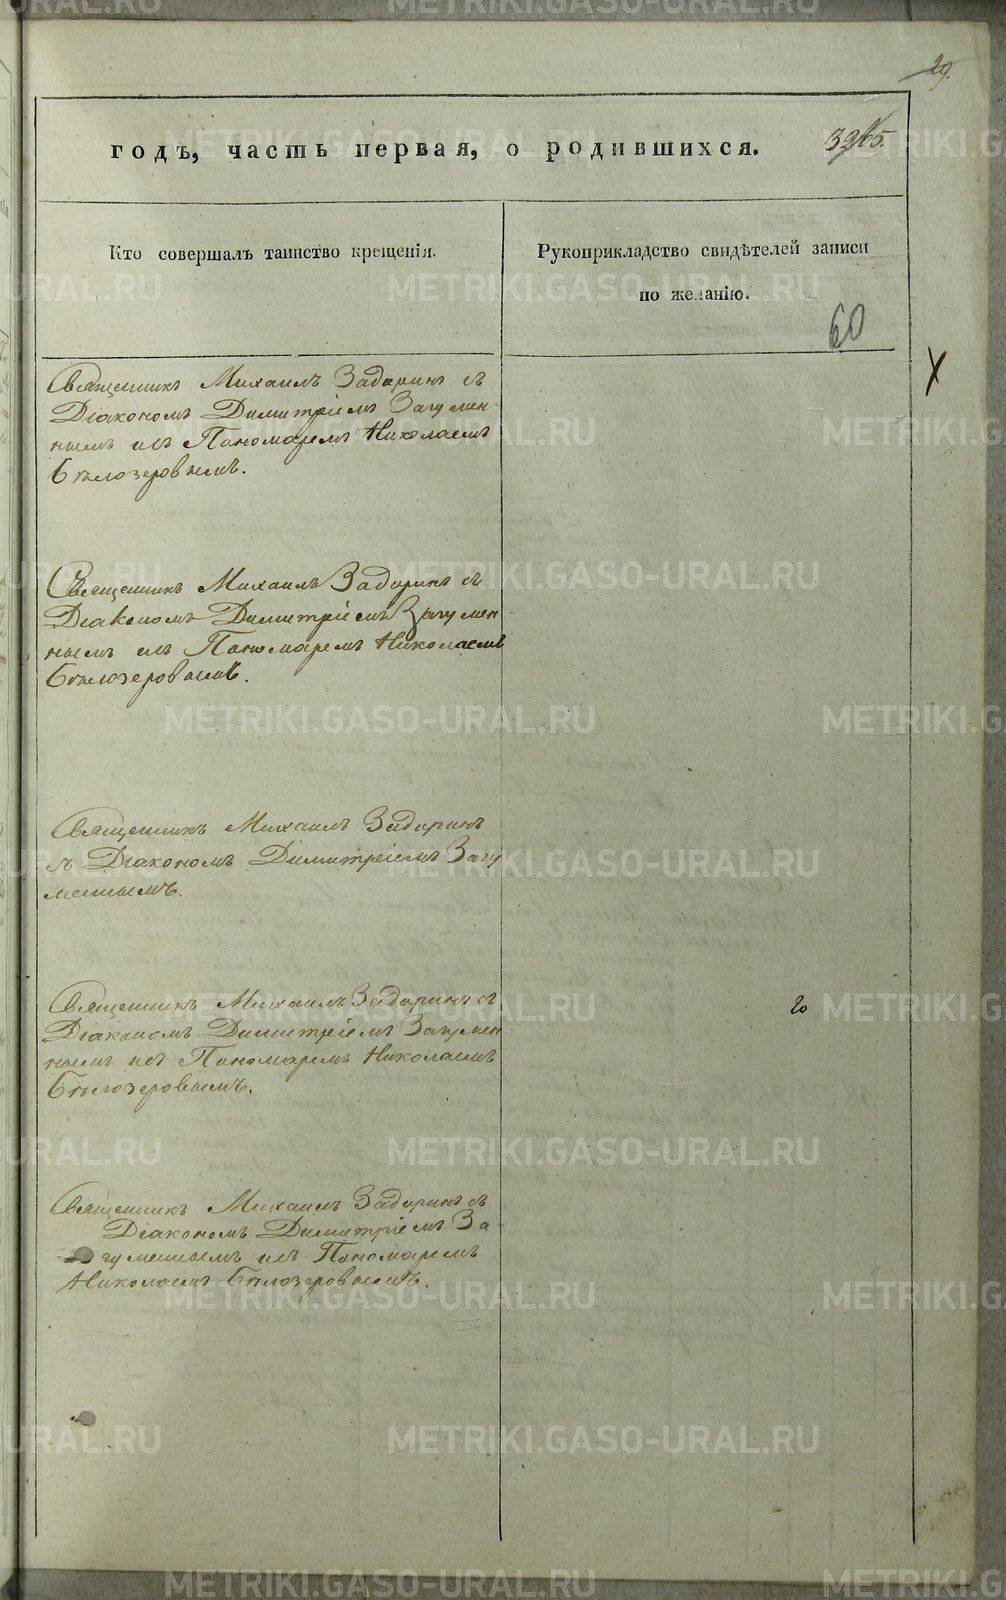 29.
годъ, часть первая, о родившихся.
Кто совершалъ таинство крещенія.
Рукоприкладство свидѣтелей записи
по желанію.
60
Священникъ Михаилъ Задоринъ съ
Діакономъ Димитріемъ Загумен-
нымъ и съ Пономаремъ Николаемъ
Бѣлозеровымъ.
Священникъ Михаилъ Задоринъ съ
Діакономъ Димитріемъ Загумен
нымъ съ Пономаремъ Николаемъ
Бѣлозеровымъ.
Священникъ Михаилъ Задоринъ
съ Діакономъ Димитріемъ Загу
меннымъ.
Священникъ Михаилъ Задоринъ съ
Діакономъ Димитріемъ Загумен
нымъ и съ Пономаремъ Николаемъ
Бѣлозеровымъ.
Священникъ Михаилъ Задоринъ съ
Діакономъ Димитріемъ За-
гуменнымъ и съ Пономаремъ
Николаемъ Бѣлозеровымъ.
METRIKI.GASO-URAL.RU